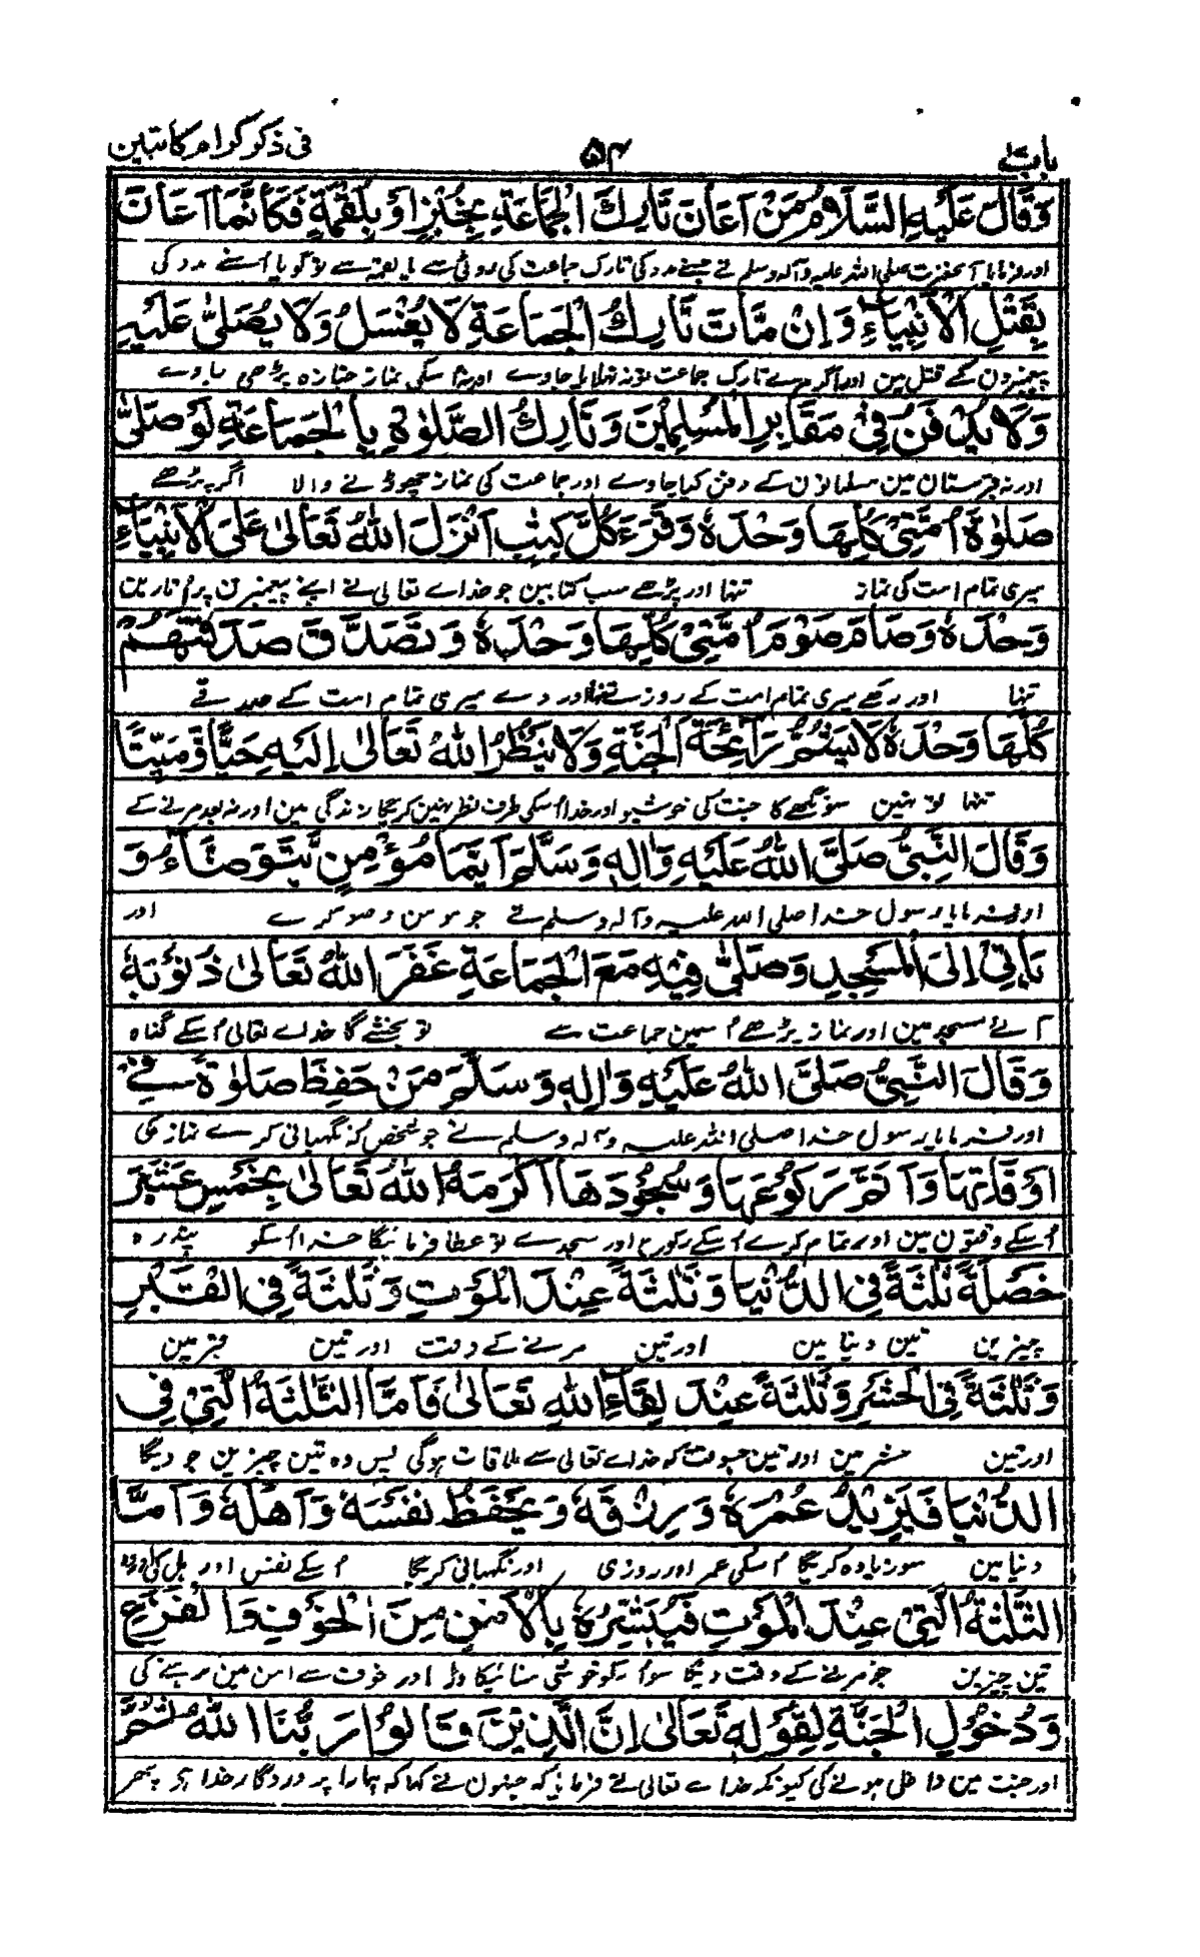 باب ۵۴ فی ذکر کرام کاتبین
وَقَالَ عَلَيْهِ السَّلَامُ مَنْ اَعَانَ تَارِكَ الْجَمَاعَةِ بِخُبْزٍ اَوْ بِلُقْمَةٍ فَكَاَنَّمَا اَعَانَ
اور فرمایا آنحضرت صلی اللہ علیہ وآلہ وسلم نے جسنے مدد کی تارک جماعت کی روٹی سے یا لقمہ سے تو گویا اُسنے مدد کی
بِقَتْلِ الْاَنْبِيَاءِ وَاِنْ مَّاتَ تَارِكُ الْجَمَاعَةِ لَا يُغْسَلُ وَلَا يُصَلّٰى عَلَيْهِ
پیغمبرون کے قتل مین اور اگر مرے تارک جماعت تو نہ نہلایا جاوے اور نہ اُسکی نماز جنازہ پڑھی جاوے
وَلَا يُدْفَنُ فِيْ مَقَابِرِ الْمُسْلِمِيْنَ وَتَارِكُ الصَّلٰوةِ بِالْجَمَاعَةِ لَوْ صَلّٰى
اور نہ قبرستان مین مسلمانون کے دفن کیا جاوے اور جماعت کی نماز چھوڑنے والا اگر پڑھے
صَلٰوةَ اُمَّتِيْ كُلِّهَا وَحْدَهٗ وَقَرَءَ كُلَّ كِتٰبٍ اَنْزَلَ اللّٰهُ تَعَالٰى عَلَى الْاَنْبِيَاءِ
میری تمام امت کی نماز تنہا اور پڑھے سب کتابین جو خداے تعالی نے اپنے پیغمبرون پر اُتارین
وَحْدَهٗ وَصَامَ صَوْمَ اُمَّتِيْ كُلِّهَا وَحْدَهٗ وَتَصَدَّقَ صَدَقَتَهُمْ
تنہا اور رکھے میری تمام امت کے روزے تنہا اور دے میری تمام امت کے صدقے
كُلَّهَا وَحْدَهٗ لَا يَشُمُّ رَآئِحَةَ الْجَنَّةِ وَلَا يَنْظُرُ اللّٰهُ تَعَالٰى اِلَيْهِ حَيًّا وَّمَيِّتًا
تنہا تو نہین سونگھے گا جنت کی خوشبو اور خدا اُسکی طرف نظر نہین کریگا زندگی مین اور نہ بعد مرنے کے
وَقَالَ النَّبِيُّ صَلَّى اللّٰهُ عَلَيْهِ وَاٰلِهٖ وَسَلَّمَ اَيُّمَا مُؤْمِنٍ يَّتَوَضَّاءُ وَ
اور فرمایا رسول خدا صلی اللہ علیہ وآلہ وسلم نے جو مومن وضو کرے اور
يَاْتِيْ اِلَى الْمَسْجِدِ وَصَلّٰى فِيْهِ مَعَ الْجَمَاعَةِ غَفَرَ اللّٰهُ تَعَالٰى ذُنُوْبَهٗ
آئے مسجد مین اور نماز پڑھے اُسمین جماعت سے تو بخشے گا خداے تعالی اُسکے گناہ
وَقَالَ النَّبِيُّ صَلَّى اللّٰهُ عَلَيْهِ وَاٰلِهٖ وَسَلَّمَ مَنْ حَفِظَ صَلٰوةً فِيْ
اور فرمایا رسول خدا صلی اللہ علیہ وآلہ وسلم نے جو شخص کہ نگہبانی کرے نماز کی
اَوْقَاتِهَا وَاَتَمَّ رَكُوْعَهَا وَسُجُوْدَهَا اَكْرَمَهُ اللّٰهُ تَعَالٰى بِخَمْسِ عَشَرَ
اُسکے وقتون مین اور تمام کرے اُسکے رکوع اور سجدے تو عطا فرمائیگا خدا اُسکو پندرہ
خَصْلَةً ثَلٰثَةً فِي الدُّنْيَا وَثَلٰثَةً عِنْدَ الْمَوْتِ وَثَلٰثَةً فِي الْقَبْرِ
چیزین تین دنیا مین اور تین مرنے کے وقت اور تین قبر مین
وَثَلٰثَةً فِي الْحَشْرِ وَثَلٰثَةً عِنْدَ لِقَاءِ اللّٰهِ تَعَالٰى فَاَمَّا الثَّلٰثَةُ الَّتِيْ فِي
اور تین حشر مین اور تین جسوقت کہ خداے تعالی سے ملاقات ہوگی پس وہ تین چیزین جو دیگا
الدُّنْيَا فَيَزِيْدُ عُمْرَهٗ وَرِزْقَهٗ وَيَحْفَظُ نَفْسَهٗ وَاَهْلَهٗ وَاَمَّا
دنیا مین سو زیادہ کریگا اُسکی عمر اور روزی اور نگہبانی کریگا اُسکے نفس اور اہل کی اور وہ
الثَّلٰثَةُ الَّتِيْ عِنْدَ الْمَوْتِ فَيُبَشِّرُهٗ بِالْاَمْنِ مِنَ الْخَوْفِ وَالْفَزَعِ
تین چیزین جو مرنے کے وقت دیگا سو اُسکو خوشی سنائیگا ڈر اور خوف سے امن مین رہنے کی
وَدُخُوْلِ الْجَنَّةِ لِقَوْلِهٖ تَعَالٰى اِنَّ الَّذِيْنَ قَالُوْا رَبُّنَا اللّٰهُ ثُمَّ
اور جنت مین داخل ہونے کی کیونکہ خداے تعالی نے فرمایا کہ جنہون نے کہا کہ ہمارا پروردگار خدا ہی پھر